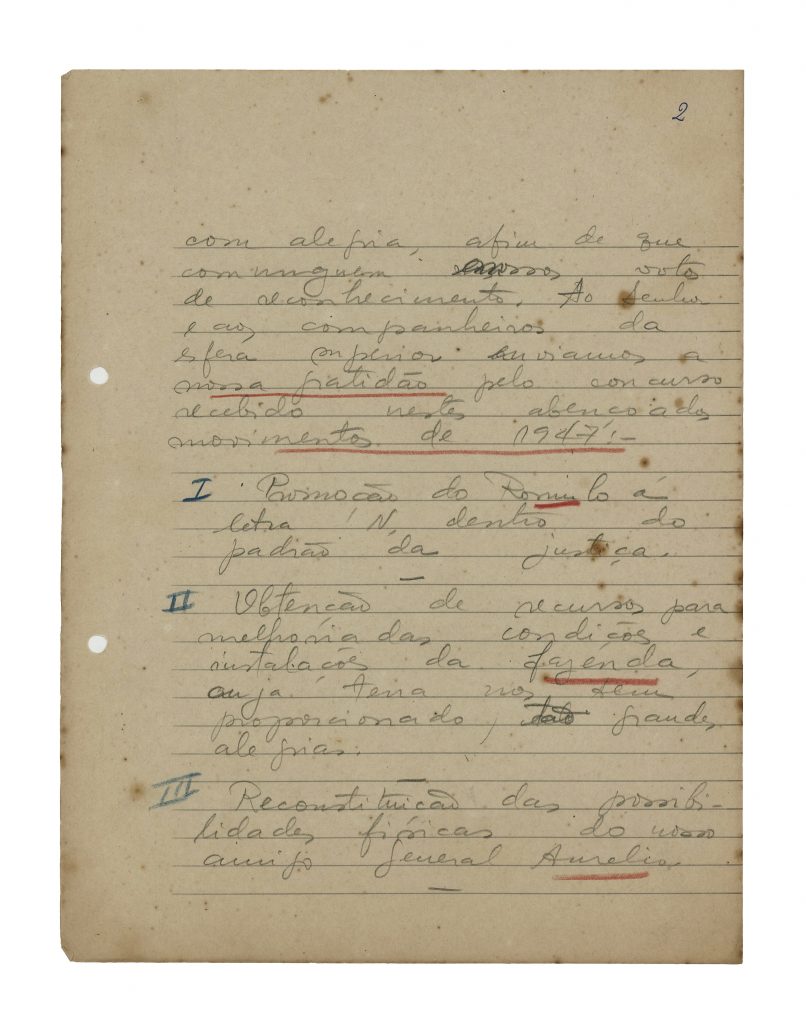 2
com alegria, afim de que
comunguem nossos votos
de reconhecimento. Ao Senhor
e aos companheiros da
esfera superior enviamos a
nossa gratidão pelo concurso
recebido nestes abençoados
movimentos de 1947:-
I Promoção do Romulo á
letra N, dentro do
padrão da justiça.
II Obtenção de recursos para
melhoria das condições e
instalações da fazenda,
cuja terra nos tem
proporcionado, grandes
alegrias.
III Reconstituição das possibi-
lidades físicas do nosso
amigo General Aurelio.